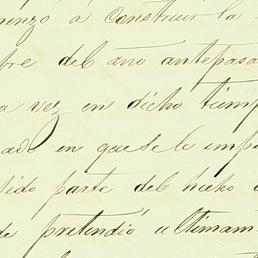 menzó á construir la
bre del año antepasa
a vez en dicho tiemp
ado en que se le impo
dido parte del hecho
de pretendió ultimam